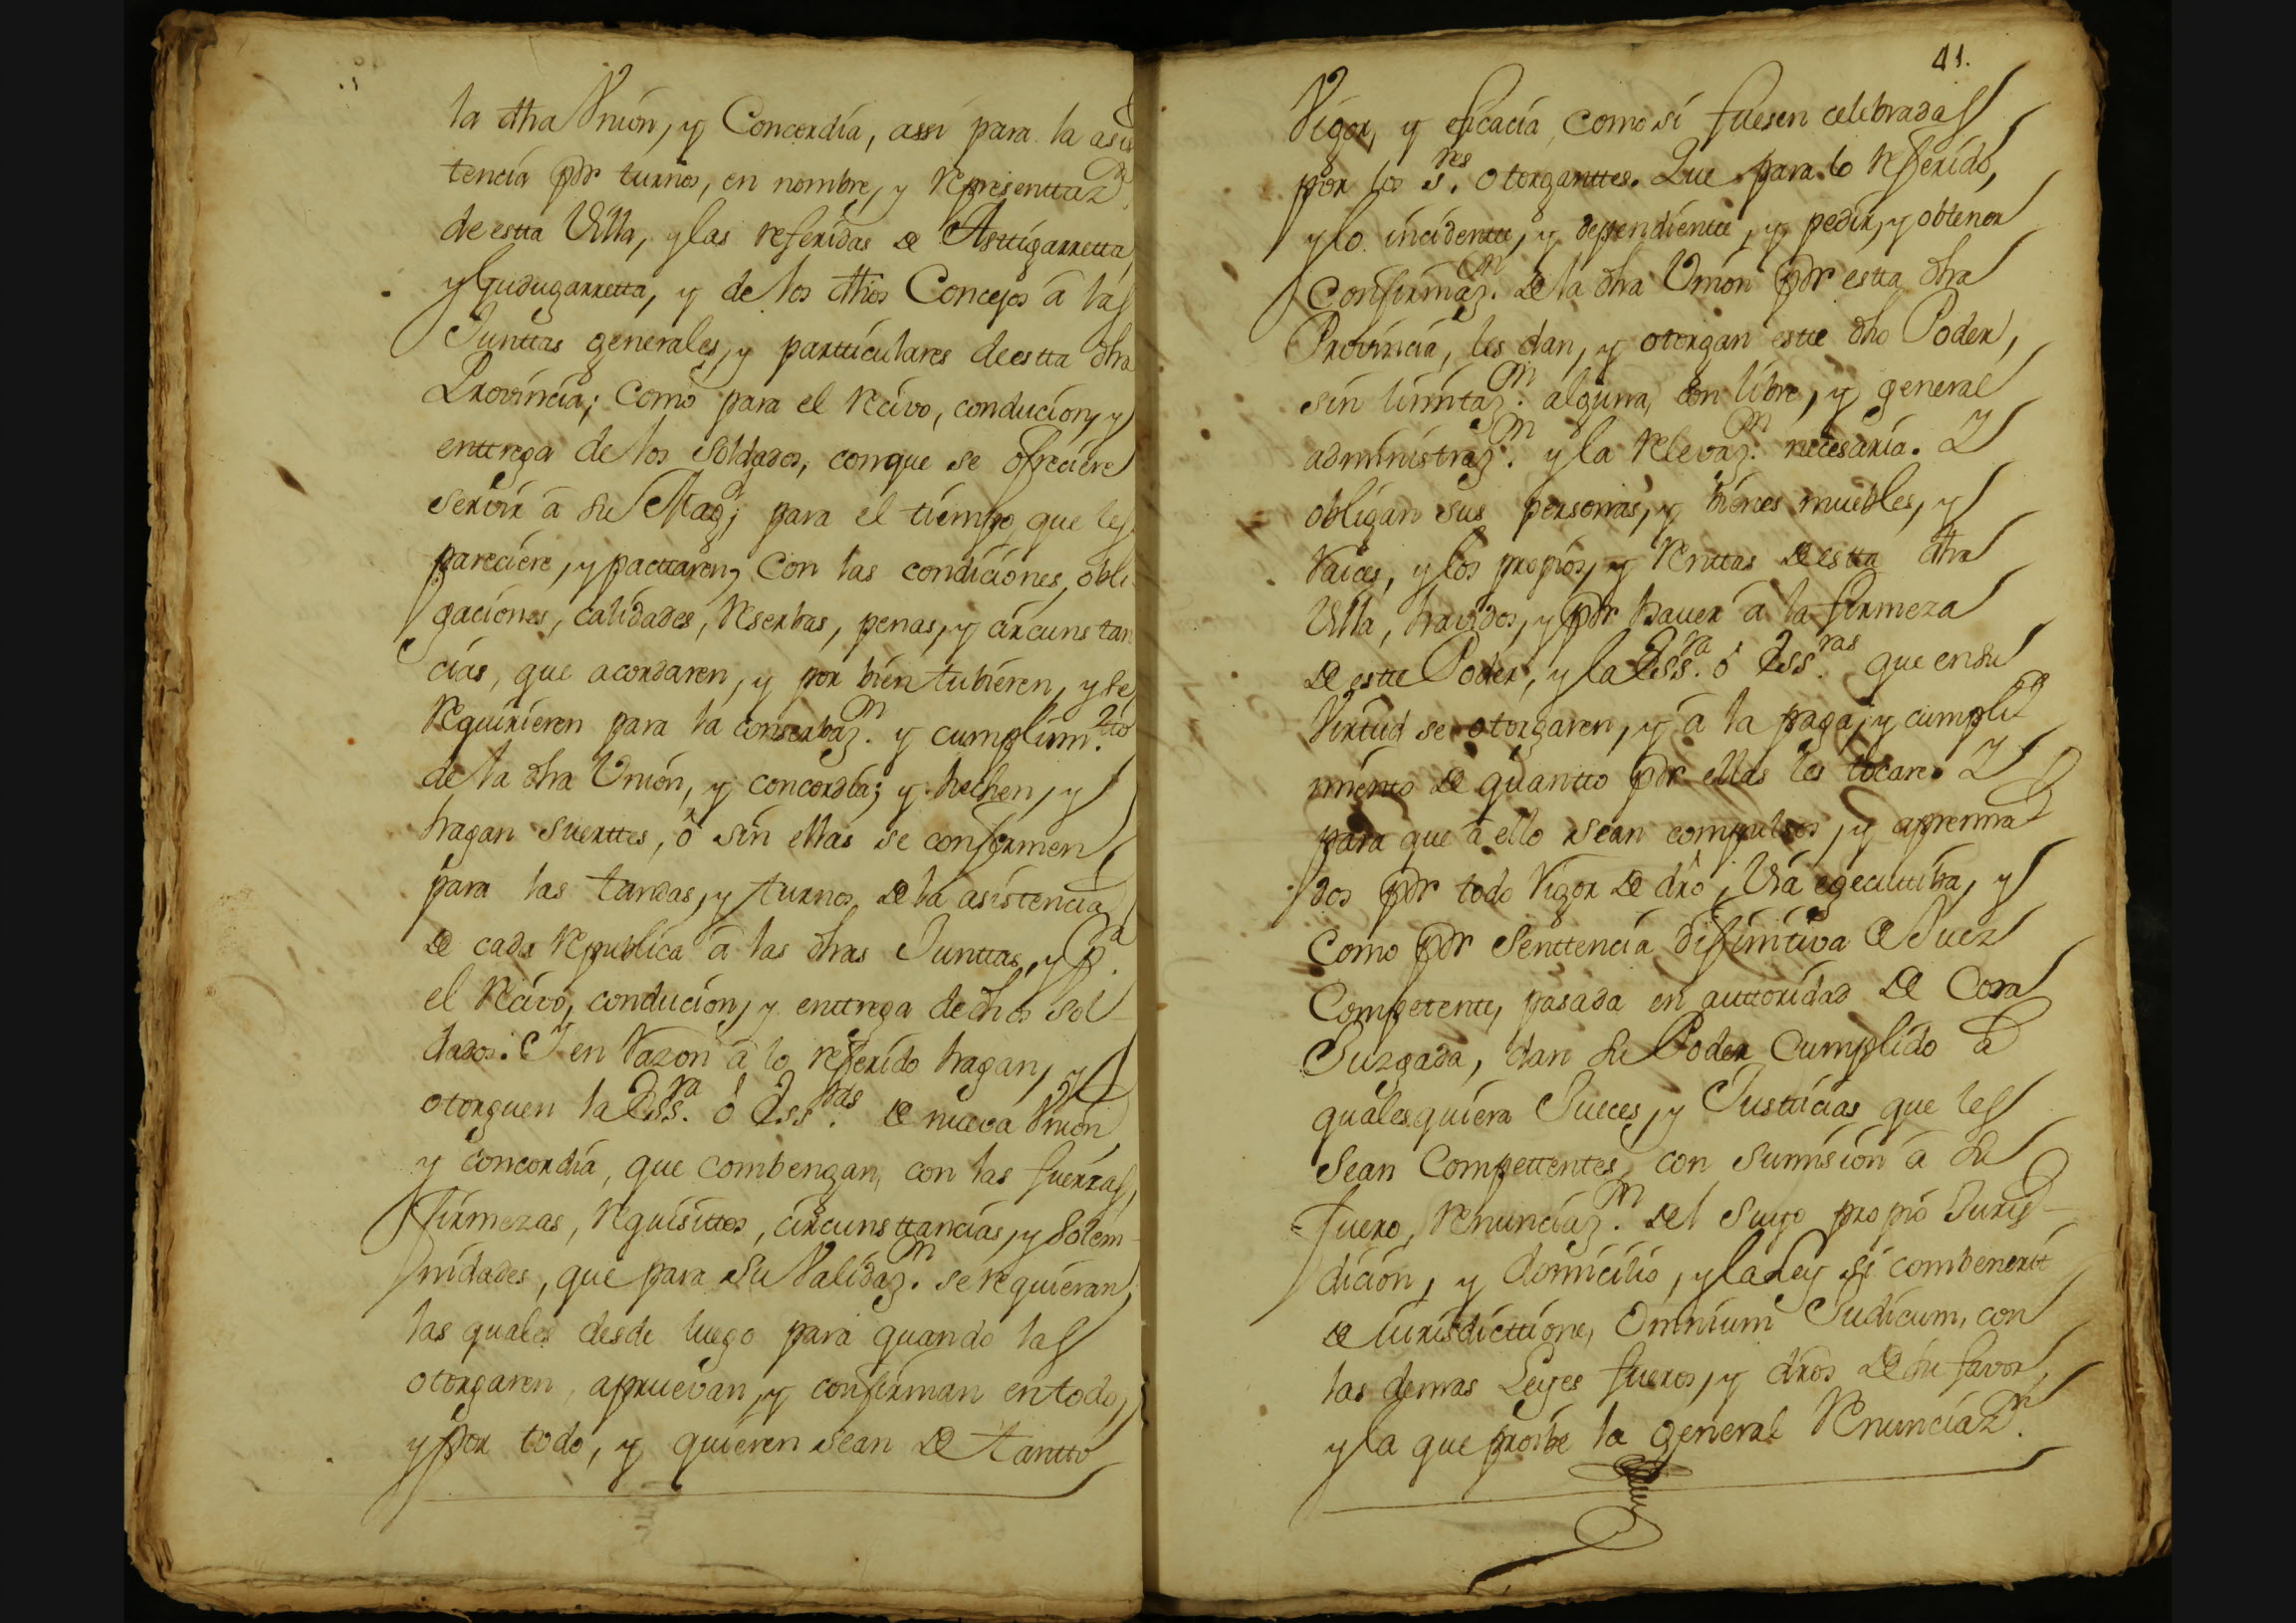 la dha Vnion, y Concordia, assi para la asis
tencia por turnos, en nombre, y representtaz.n
de estta Villa, y las referidas de Asttigarretta,
y Gudugarretta, y de los dhos Concejos â las
Junttas generales, y partticulares de estta dha
Provincia; como para el recivo, conducion, y
enttrega de los soldados, conque se ofreciere
servir â su Mag.d; para el tiempo que les
pareciere, y pacttaren, con las condiciones, obli
gaciones, calidades, reserbas, penas, y circunstan
cias, que acordaren, y por bien tubieren, y se
requirieren para la conserbaz.n y cumplim.tto
de la dha Vnion, y concordia; y hechen, y
hagan suerttes, ô sin ellas se conformen
para las tandas, y turnos de la asistencia
de cada republica â las dhas Junttas, y p.a
el recivo, conducion, y enttrega de dhos sol
dados. I en razon â lo referido hagan, y
otorguen la Ess.ra ô Ess.ras de nueva Vnion
y concordia, que combengan, con las fuerzas,
firmezas, requisittos, circunsttancias, y solem-
nidades, que para su validaz.n se requieran;
las quales desde luego para quando las
otorgaren, apruevan, y confirman en todo,
y por todo, y quieren sean de tantto
41.
Vigor, y eficacia, como si fuesen celebradas
por los s.res otorganttes. Que para lo referido,
y lo incidentte, y dependientte, y pedir, y obtener
Confirmaz.n de la dha Vnion por estta dha
Provincia, les dan, y otorgan estte dho Poder,
sin limitaz.n alguna, con libre, y general
administraz.n y la relevaz.n necesaria. I
obligan sus personas, y bienes muebles, y
raices, y los propios, y renttas de estta dha
Villa, havidos, y por haver â la firmeza
de estte Poder, y la Ess.ra ô Ess.ras que en su
Virtud se otorgaren, y â la paga, y cumpli
miento de quantto por ellas les tocare. I
para que â ello sean compulsos, y apremia
dos por todo rigor de dro, via egecuttiba, y
como por senttencia difinitiva de Juez
Competente, pasada en auttoridad de Cosa
Juzgada, dan su Poder Cumplido â
qualesquiera Jueces, y Justticias que les
sean Compettentes, con sumision â su
fuero, renunciaz.n del suyo propio Juris-
dicion, y domicilio, y la Ley si combenerit
de Iurisdicttione, Omnium Judicum, con
las demas Leyes fueros, y dros de su favor,
y la que proibe la general renunciaz.n